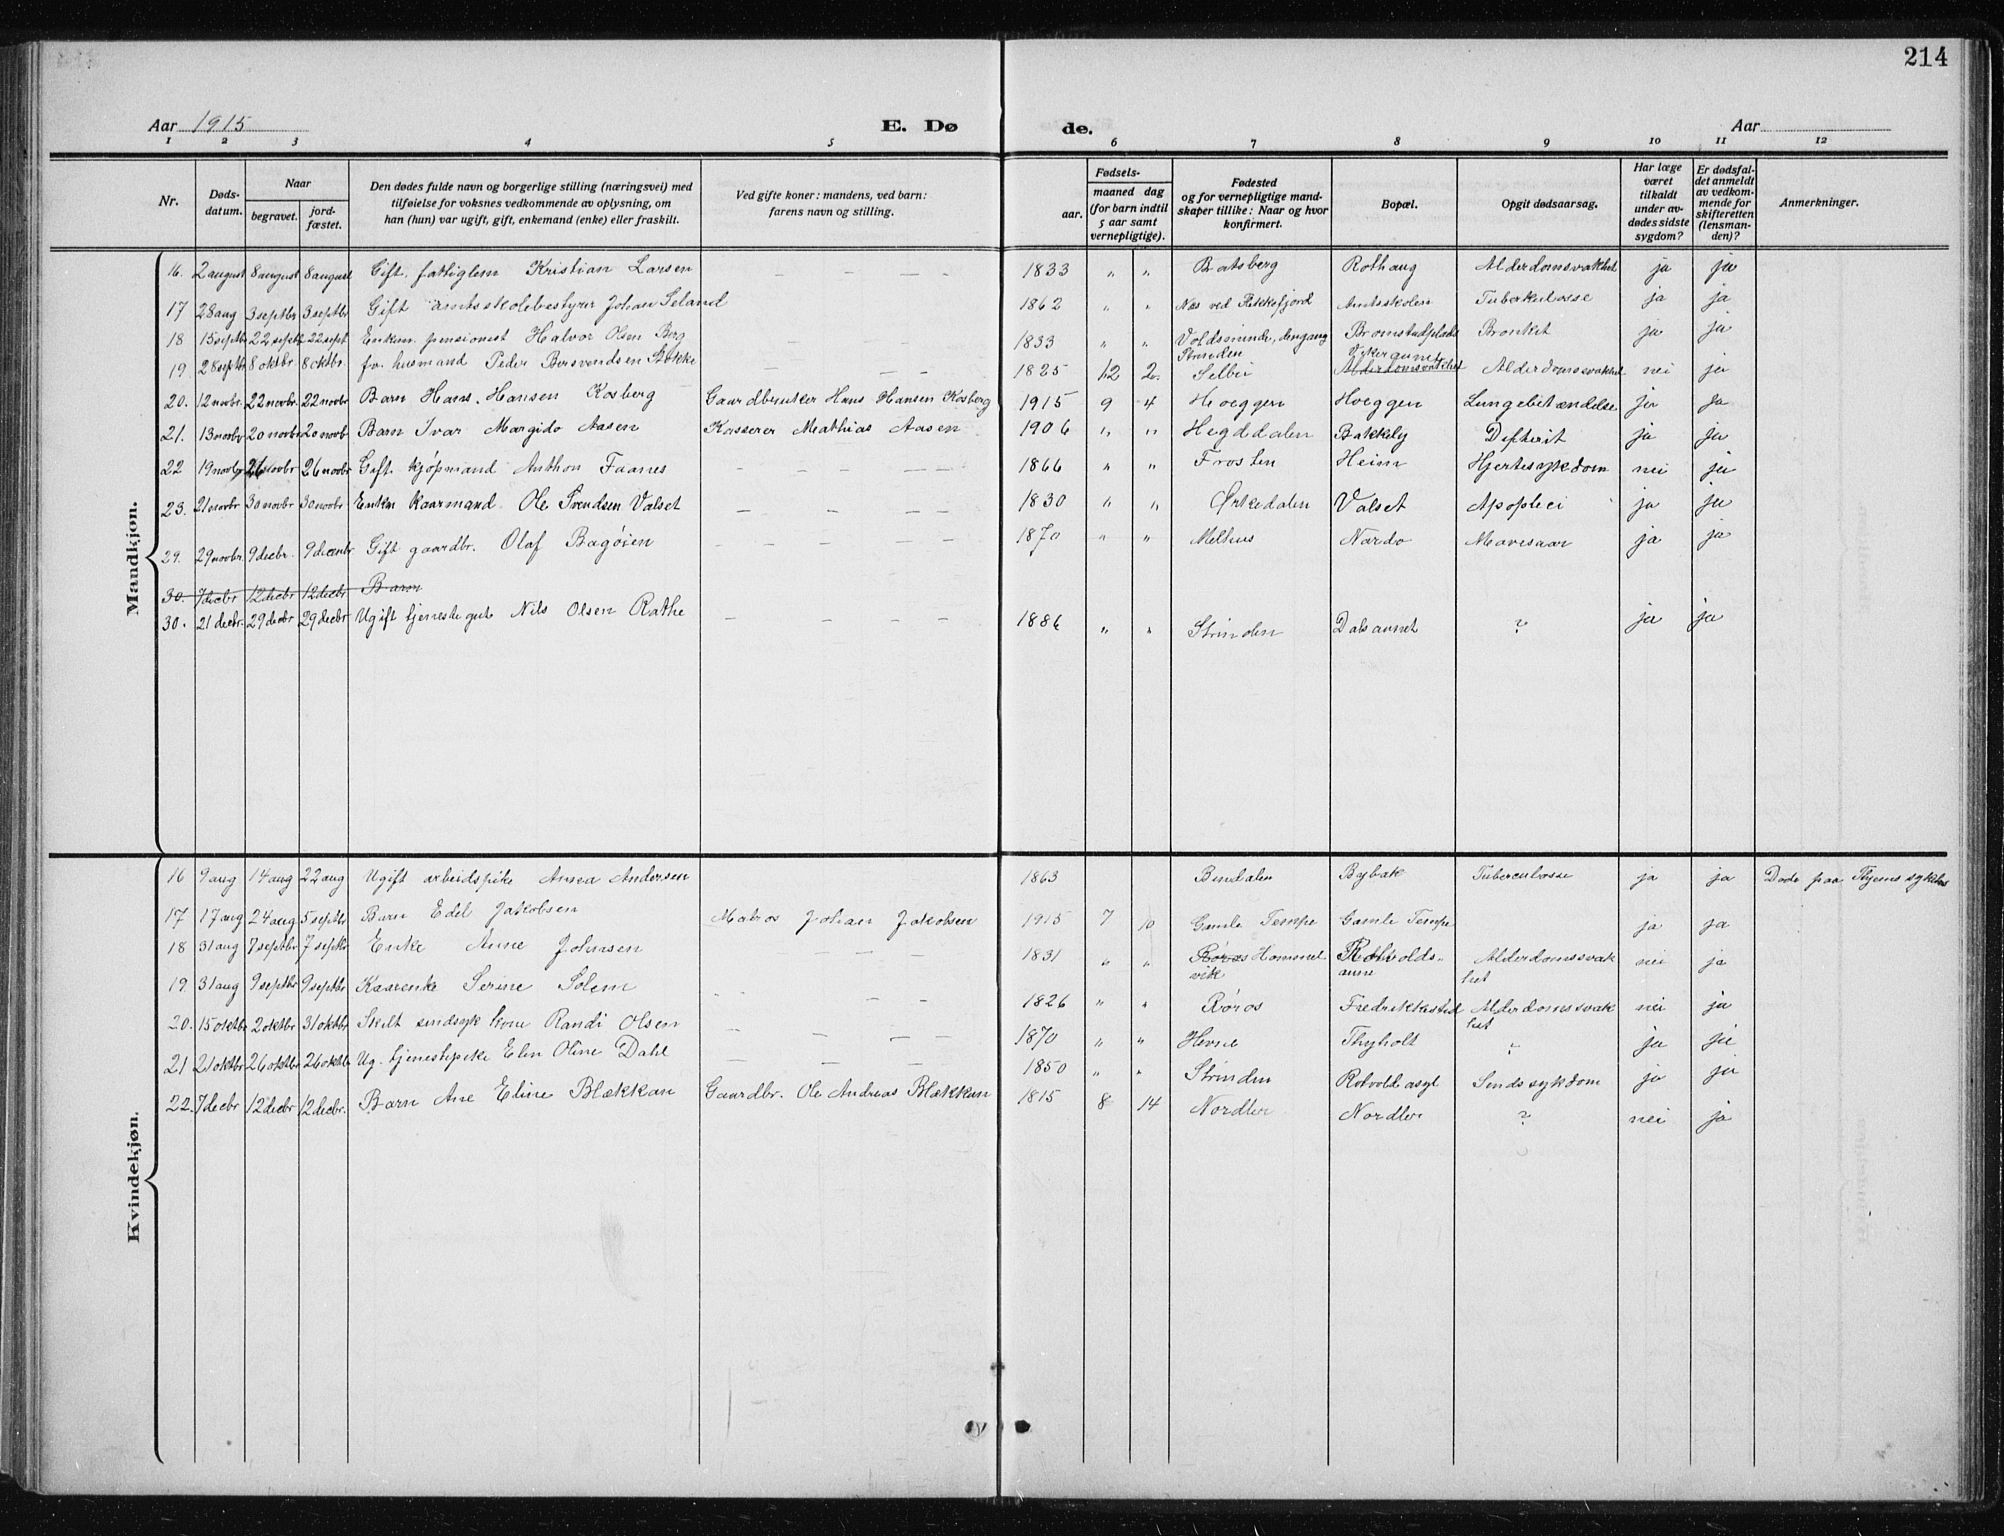 214
Aar 1915 E. Døde. Aar
1 2 3 4 5 6 7 8 9 10 11 12
Nr.
Døds-datum.
Naar
begravet.
jord-fæstet.
Den dødes fulde navn og borgerlige stilling (næringsvei) med
tilføielse for voksnes vedkommende av oplysning, om
han (hun) var ugift, gift, enkemand (enke) eller fraskilt.
Ved gifte koner: mandens, ved barn:
farens navn og stilling.
Fødsels-
aar.
maaned dag
(for barn indtil
5 aar samt
vernepligtige).
Fødested
og for vernepligtige mand-
skaper tillike: Naar og hvor
konfirmert.
Bopæl.
Opgit dødsaarsag.
Har læge
været
tilkaldt
under av-
dødes sidste
sygdom?
Er dødsfal-
det anmeldt
av vedkom-
mende for
skifteretten
(lensman-
den)?
Anmerkninger.
Mandkjøn.
16. 2 august 8 august 8 august Gift. fattiglem Kristian Larsen — — — — 1833 " " Batsberg Rothaug Alderdomsvakhet ja ja
17 28 aug 3 septbr 3 septbr Gift amtsskolebestyrer Johan Seland — — — — 1862 " " Næs ved Flekkefjord Amtsskolen Tuberkulosse ja ja
18 15 septbr 22 septbr 22 sept Enkem. pensionist Halvor Olsen Berg — — — — 1833 " " Voldsminde, dengang Strinden Bromstadplads Bronkit ja ja
19. 28 septbr 8 oktbr. 8 oktbr. fv. husmand Peder Bersvendsen Stokke — — — — 1825 12 2. Selbu Vikeraunet Alderdomsvakhet Alderdomssvakhet nei ja
20. 12 novbr. 22 novbr. 22 novbr Barn Hans. Hansen Kosberg Gaardbruker Hans Hansen Kosberg 1915 9 4 Hoeggen Hoeggen Lungebetændelse ja ja
21. 13 novbr 20 novbr 20 novb Barn Ivar Margido Aasen Kasserer Mathias Aasen 1906 " " Hegddalen Bakkely Difterit ja ja
22 19 novbr 26 novbr 26 novbr Gift. kjøpmand Anthon Faanes — — — — 1866 " " Frosten Heim Hjertesykdom nei ja
23. 21 novbr 30 novbr 30 novbr Enkm kaarmand. Ole Svendsen Valset — — — — 1830 " " Ørkedalen Valset Apoplexi ja ja
29. 29 novbr. 9 decbr. 9 decmbr Gift gaardbr. Olaf Bagøien — — — — 1870 " " Melhus Nardo Mavesaar ja ja
30. 7 decbr 12 decbr 12 decbr Barn
30. 21 decbr. 29 decbr 29 decbr Ugift tjenestegut Nils Olsen Rathe — — — — 1886 " " Strinden Dalsaunet ? ja ja
Kvindekjøn.
16 9 aug 14 aug 22 aug Ugift arbeidspike Anna Andersen 1863 Bindalen Bybak Tuberculosse ja ja Døde paa Thjems sykehus
17 17 aug 24 aug 5 septbr Barn Edel Jakobsen Matros Johan Jakobsen 1915 7 10 Gamle Tempe Gamle Tempe ja ja
18 31 aug 7 septbr 7 septbr Enke Anne Johnsen — — — — 1831 " " Røros Hommelvik Rotvoldsaune Alderdomssvakhet nei ja
19. 31 aug 9 septbr 9 septbr Kaarenke Serine Solem 1826 " " Røros Fredrikkestad Alderdomssvakhet nei ja
20. 15 oktbr 2 oktbr 31 oktbr Skilt sindssyk kone Randi Olsen — — — — 1870 " " Hevne Thyholt " ja ja
21 21 oktbr 26 oktbr 26 oktbr Ug. tjenestepike Elen Oline Dahl — — — — 1850 " " Strinden Rotvold asyl Sindssykdom ja ja
22. 7 decbr 12 decbr 12 decbr. Barn Ane Eline Blækkan Gaardbr. Ole Andreas Blækkan 1815 8 14 Nordler Nordler ? nei ja